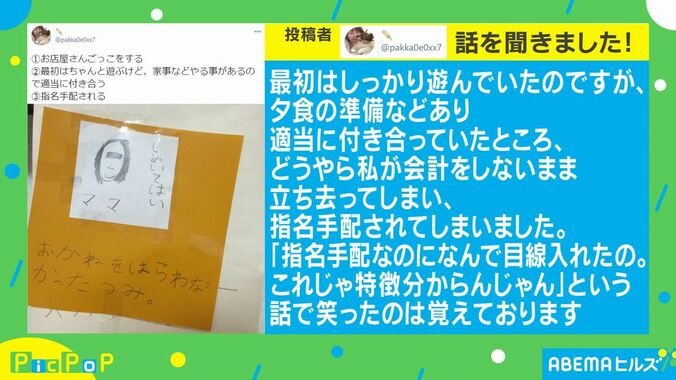 @pakka0e0xx7
①お店屋さんごっこをする
②最初はちゃんと遊ぶけど、家事などやる事があるの
で適当に付き合う
③指名手配される
しめいてはい
ママ
おかねをはらわな
かったつみ。
投稿者
@pakka0e0xx7
話を聞きました!
最初はしっかり遊んでいたのですが、
夕食の準備などあり
適当に付き合っていたところ、
どうやら私が会計をしないまま
立ち去ってしまい、
指名手配されてしまいました。
「指名手配なのになんで目線入れたの。
これじゃ特徴分からんじゃん」という
話で笑ったのは覚えております
PicPoP
ABEMAヒルズ